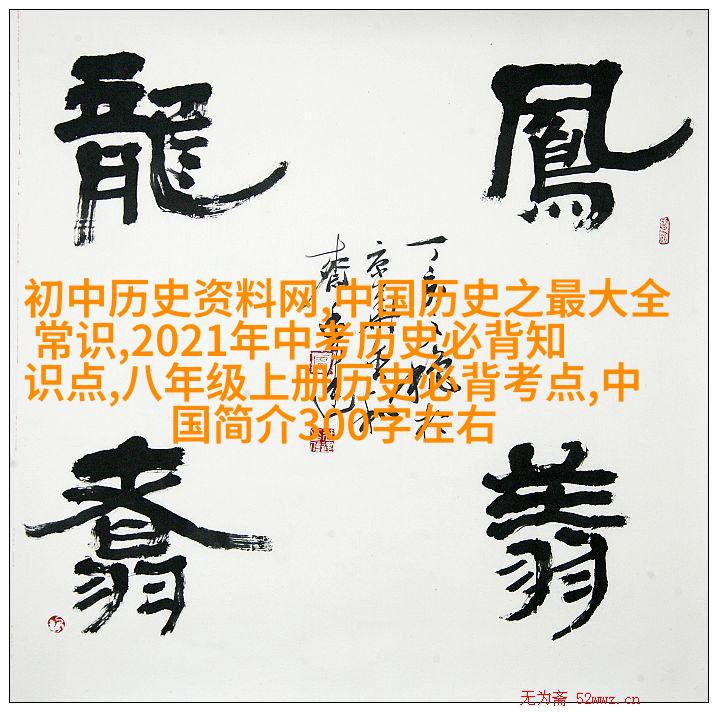 鳳翔
龍翥
丁亥之
初中历史资料网,中国历史之最大全
常识,2021年中考历史必背知
识点,八年级上册历史必背考点,中
国简介300字左右
无为斋 52wwz.cn